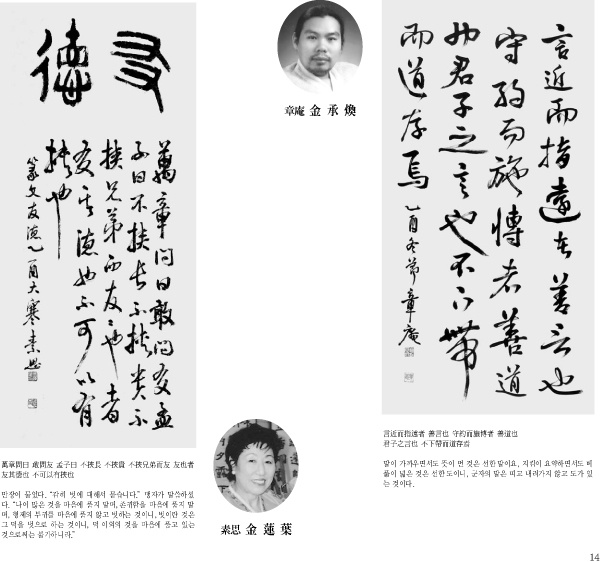 友德
萬章問曰敢問友孟
子曰不挾長不挾貴不
挾兄弟而友友也者
友其德也不可以有
挾也
篆文友德乙酉大寒素思
萬章問曰 敢問友 孟子曰 不挾長 不挾貴 不挾兄弟而友 友也者
友其德也 不可以有挾也
만장이 물었다. “감히 벗에 대해서 묻습니다.” 맹자가 말씀하셨
다. “나이 많은 것을 마음에 품지 말며, 존귀함을 마음에 품지 말
며, 형제의 부귀를 마음에 품지 않고 벗하는 것이니, 벗이란 것은
그 덕을 벗으로 하는 것이니, 덕 이외의 것을 마음에 품고 있는
것으로써는 불가하니라.”
章庵 金承煥
素思 金蓮葉
言近而指遠者善言也
守約而施博者善道
也君子之言也不下帶
而道存焉
乙酉冬節章庵
言近而指遠者 善言也 守約而施博者 善道也
君子之言也 不下帶而道存焉
말이 가까우면서도 뜻이 먼 것은 선한 말이요, 지킴이 요약하면서도 베
풂이 넓은 것은 선한 도이니, 군자의 말은 띠고 내려가지 않고 도가 있
는 것이다.
14